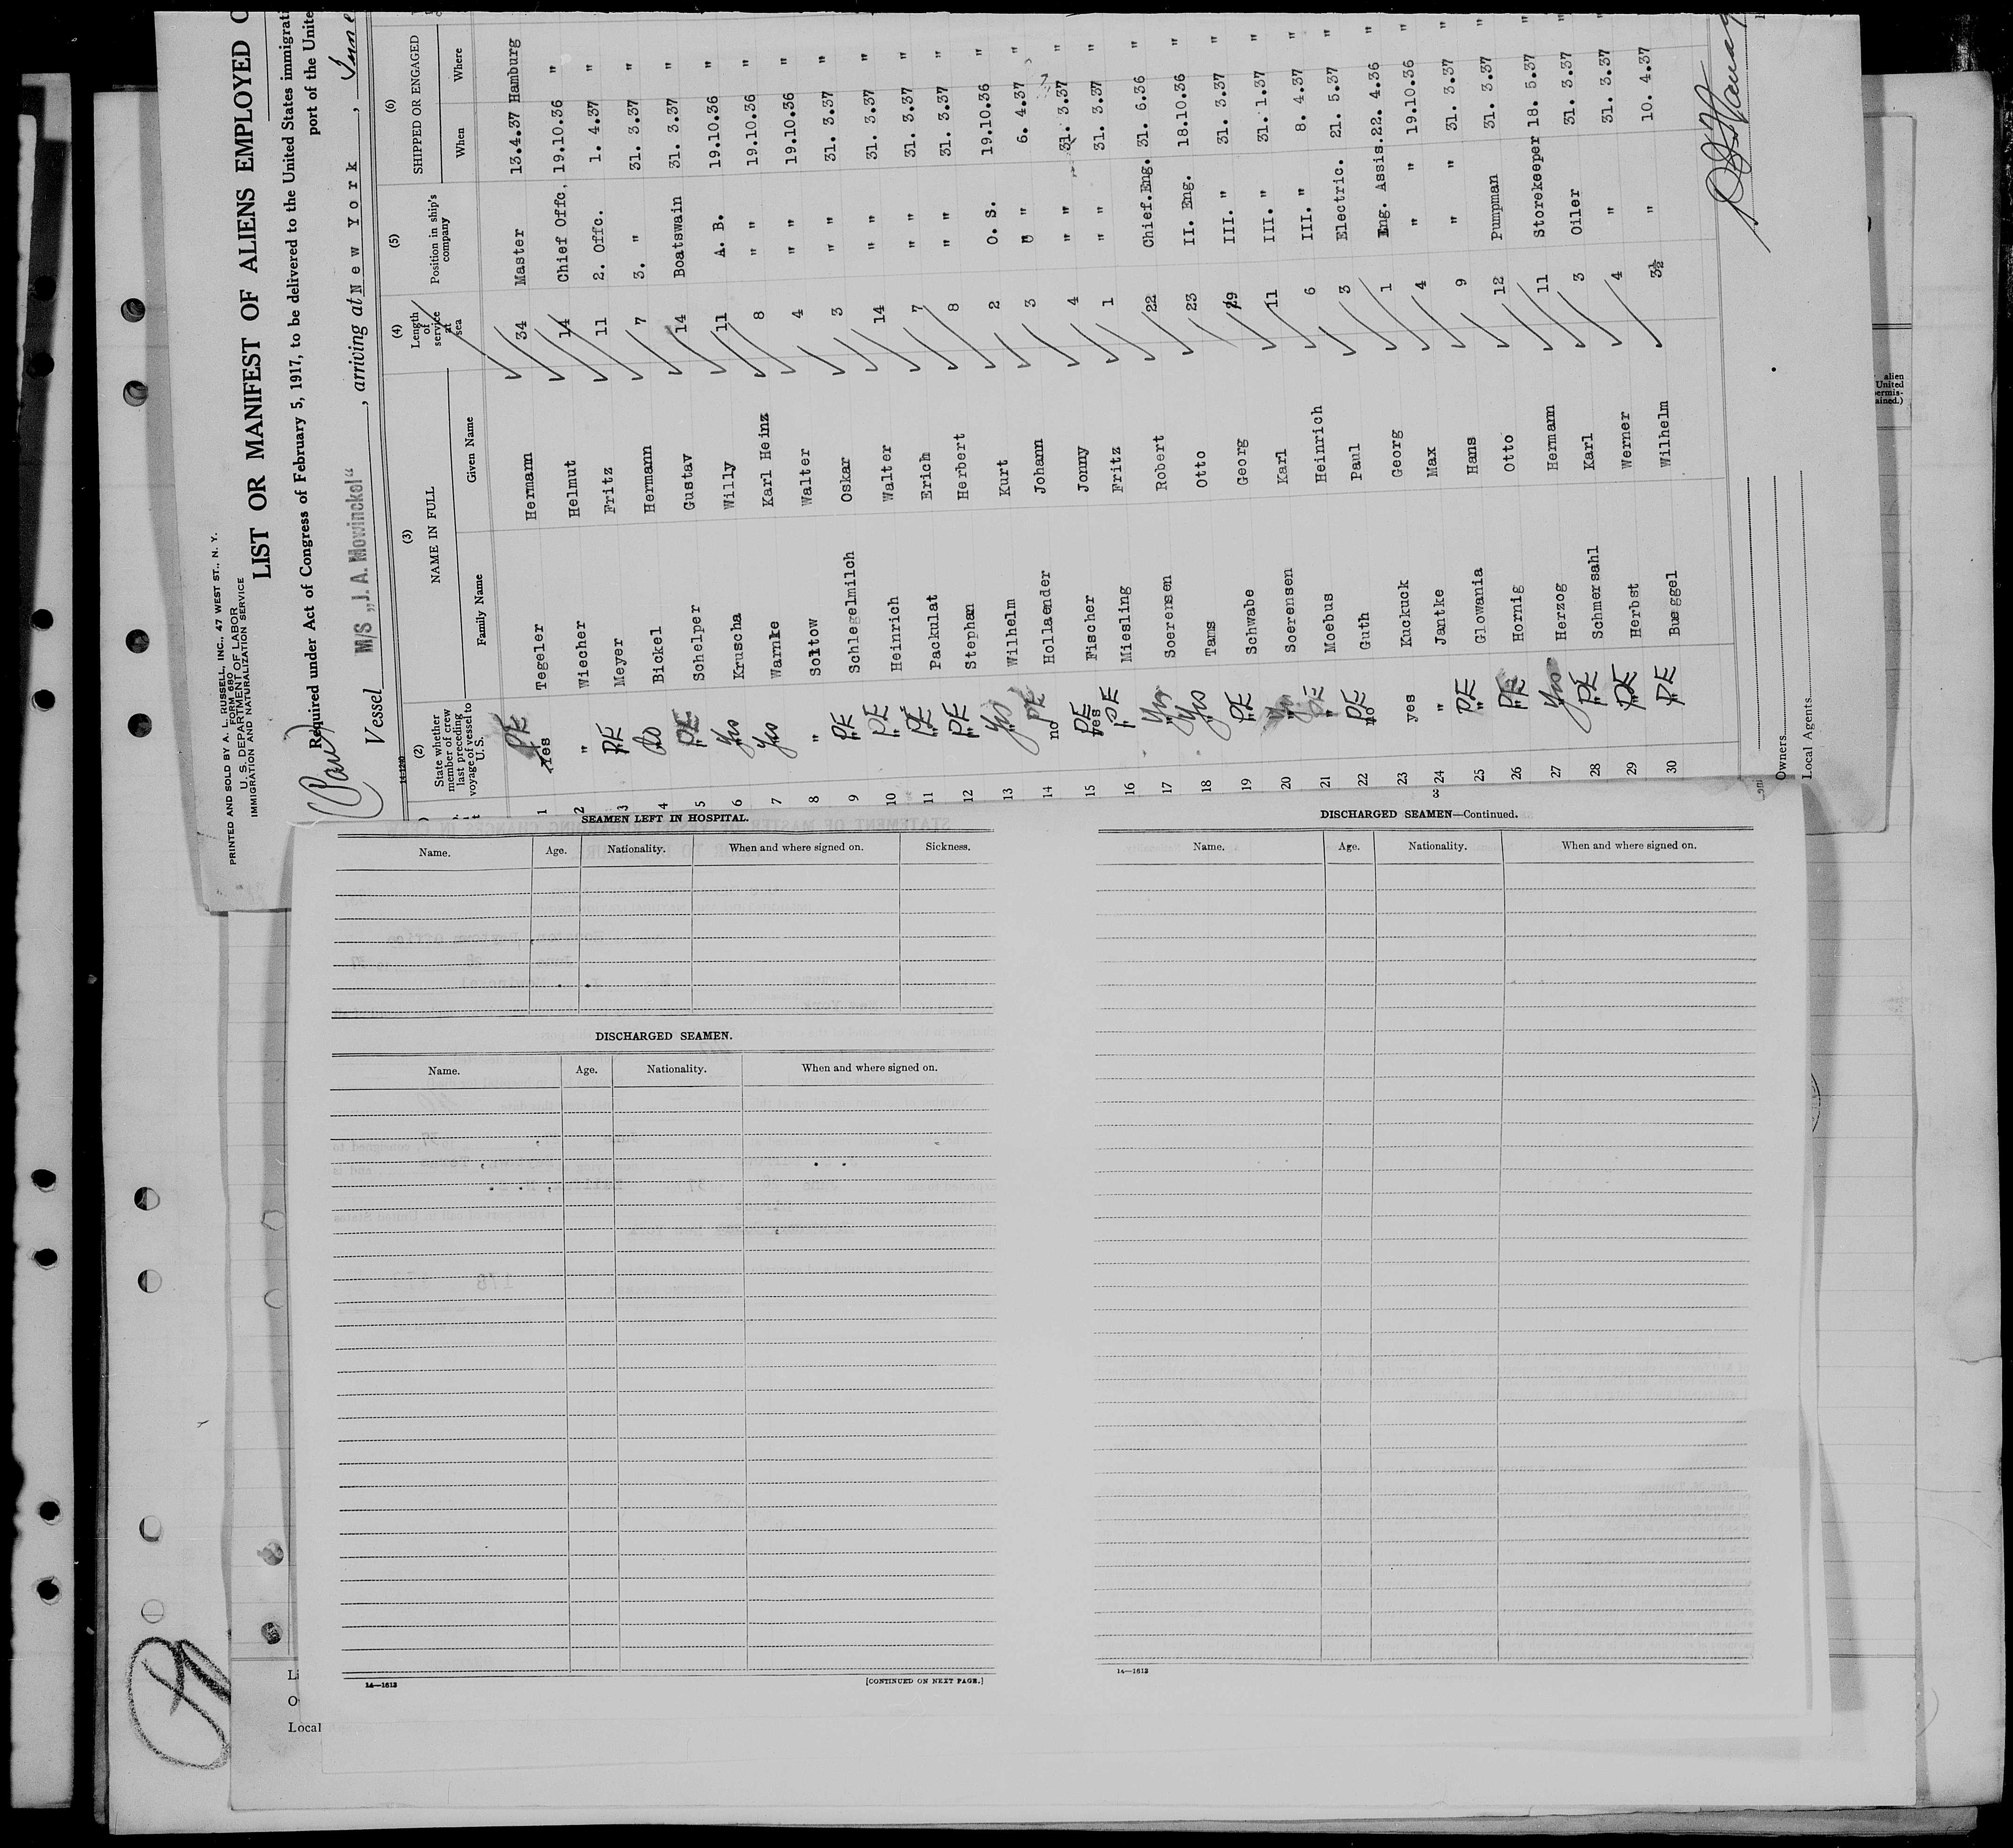 PRINTED AND SOLD BY A. L. RUSSELL, INC., 47 WEST ST., N. Y.
FORM 680
U. S. DEPARTMENT OF LABOR
IMMIGRATION AND NATURALIZATION SERVICE
LIST OR MANIFEST OF ALIENS EMPLOYED
Required under Act of Congress of February 5, 1917, to be delivered to the United States immigrati
port of the Unite
Vessel M/S „J. A. Mowinckel“, arriving at New York, June
14-1240
(2) (3) (4) (5) (6)
State whether member of crew last preceding voyage of vessel to U.S. NAME IN FULL Length of service at sea Position in ship's company SHIPPED OR ENGAGED
Family Name Given Name When Where
1 yes PE Tegeler Hermann 34 Master 13.4.37 Hamburg
2 " Wiecher Helmut 14 Chief Offc. 19.10.36 "
3 PE Meyer Fritz 11 2. Offc. 1. 4.37 "
4 do Bickel Hermann 7 3. " 31. 3.37 "
5 PE Schelper Gustav 14 Boatswain 31. 3.37 "
6 Yes Kruscha Willy 11 A. B. 19.10.36 "
7 Yes Warnke Karl Heinz 8 " " 19.10.36 "
8 " Soltow Walter 4 " " 19.10.36 "
9 PE Schlegelmilch Oskar 3 " " 31. 3.37 "
10 PE Heinrich Walter 14 " " 31. 3.37 "
11 PE Packulat Erich 7 " " 31. 3.37 "
12 PE Stephan Herbert 8 " " 31. 3.37 "
13 Yes Wilhelm Kurt 2 O. S. 19.10.36 "
14 no PE Hollaender Johann 3 " " 6. 4.37 "
15 yes PE Fischer Jonny 4 " " 31. 3.37 "
16 " PE Miesling Fritz 1 " " 31. 3.37 "
17 Yes Soerensen Robert 22 Chief.Eng. 31. 6.36 "
18 Yes Tams Otto 23 II. Eng. 18.10.36 "
19 PE Schwabe Georg 29 III. " 31. 3.37 "
20 Yes Soerensen Karl 11 III. " 31. 1.37 "
21 " PE Moebus Heinrich 6 III. " 8. 4.37 "
22 no PE Guth Paul 3 Electric. 21. 5.37 "
23 yes Kuckuck Georg 1 Eng. Assis. 22. 4.36 "
24 " Jantke Max 4 " " 19.10.36 "
25 PE Glowania Hans 9 " " 31. 3.37 "
26 PE Hornig Otto 12 Pumpman 31. 3.37 "
27 Yes Herzog Hermann 11 Storekeeper 18. 5.37 "
28 PE Schmersahl Karl 3 Oiler 31. 3.37 "
29 PE Herbst Werner 4 " 31. 3.37 "
30 PE Bueggel Wilhelm 3½ " 10. 4.37 "
Owners
Local Agents
alien
United
permis-
ained.)
SEAMEN LEFT IN HOSPITAL.
Name. Age. Nationality. When and where signed on. Sickness.
DISCHARGED SEAMEN.
Name. Age. Nationality. When and where signed on.
14—1613
[CONTINUED ON NEXT PAGE.]
DISCHARGED SEAMEN—Continued.
Name. Age. Nationality. When and where signed on.
14—1613
Li
O
Local